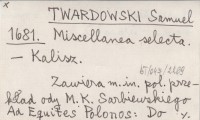 x
TWARDOWSKI Samuel
1681. Miscellanea selecta.
– Kalisz.
Zawiera m.in. pol. prze-
kład ody M. K. Sarbiewskiego
Ad Equites Polonos: Do